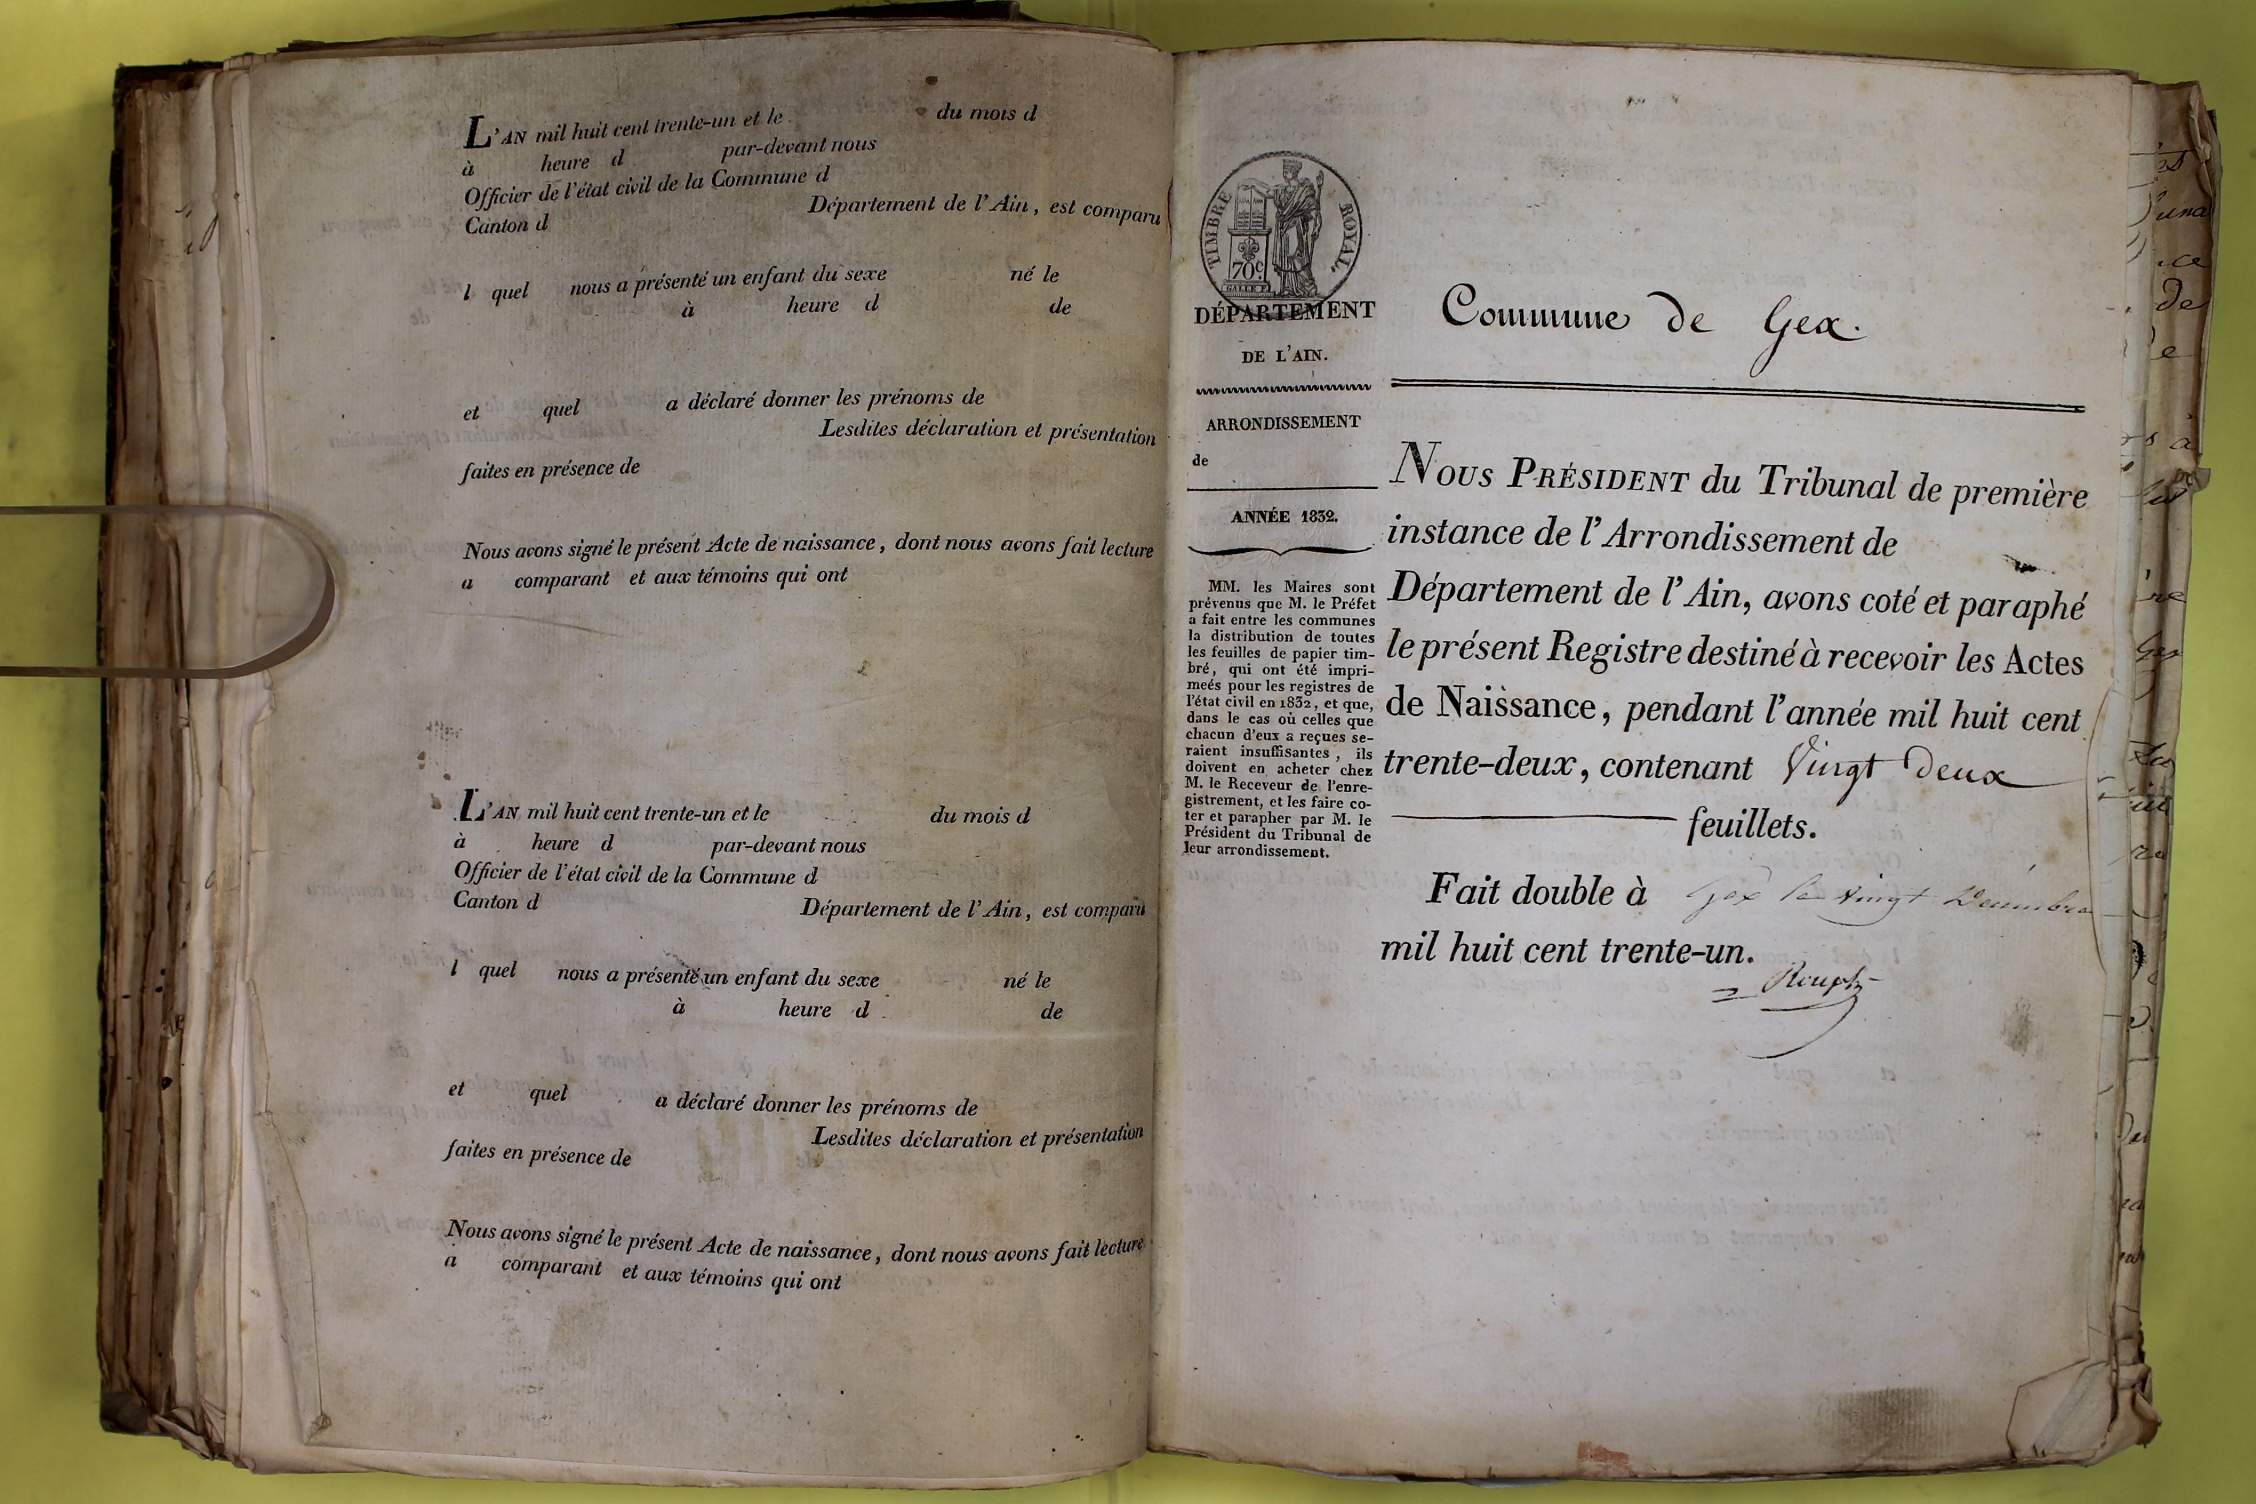 L'AN mil huit cent trente-un et le du mois d
à heure d par-devant nous
Officier de l'état civil de la Commune d
Canton d Département de l'Ain, est comparu
l quel nous a présenté un enfant du sexe né le
à heure d de
et quel a déclaré donner les prénoms de
Lesdites déclaration et présentation
faites en présence de
Nous avons signé le présent Acte de naissance, dont nous avons fait lecture
a comparant et aux témoins qui ont
L'AN mil huit cent trente-un et le du mois d
à heure d par-devant nous
Officier de l'état civil de la Commune d
Canton d Département de l'Ain, est comparu
l quel nous a présenté un enfant du sexe né le
à heure d de
et quel a déclaré donner les prénoms de
Lesdites déclaration et présentation
faites en présence de
Nous avons signé le présent Acte de naissance, dont nous avons fait lecture
a comparant et aux témoins qui ont
TIMBRE ROYAL.
70c
DÉPARTEMENT
DE L'AIN.
ARRONDISSEMENT
de
ANNÉE 1832.
MM. les Maires sont
prévenus que M. le Préfet
a fait entre les communes
la distribution de toutes
les feuilles de papier tim-
bré, qui ont été impri-
meés pour les registres de
l'état civil en 1832, et que,
dans le cas où celles que
chacun d'eux a reçues se-
raient insuffisantes, ils
doivent en acheter chez
M. le Receveur de l'enre-
gistrement, et les faire co-
ter et parapher par M. le
Président du Tribunal de
leur arrondissement.
Commune de Gex.
NOUS PRÉSIDENT du Tribunal de première
instance de l'Arrondissement de
Département de l'Ain, avons coté et paraphé
le présent Registre destiné à recevoir les Actes
de Naissance, pendant l'année mil huit cent
trente-deux, contenant Vingt deux
feuillets.
Fait double à Gex le vingt Décembre
mil huit cent trente-un.